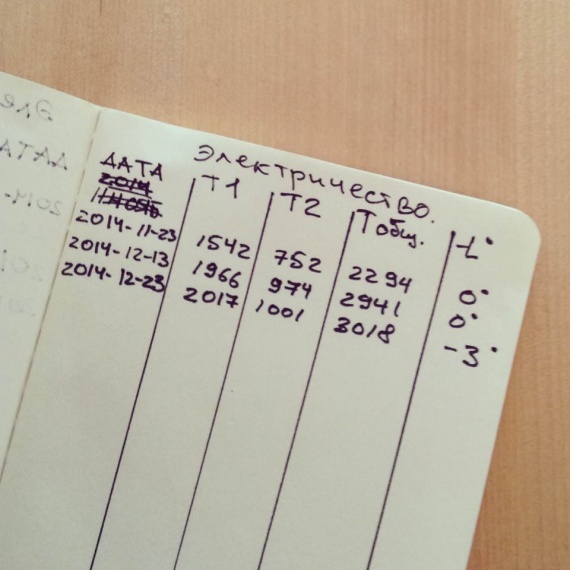 Электричество.
ДАТА T1 T2 Тобщ. t°
2014
2014-11-23 1542 752 2294 0°
2014-12-13 1966 974 2941 0°
2014-12-23 2017 1001 3018 -3°